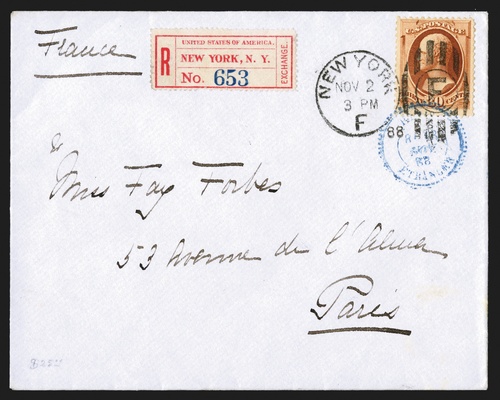 France
UNITED STATES OF AMERICA.
R NEW YORK, N. Y.
No. 653
EXCHANGE.
U.S. POSTAGE
NEW YORK
NOV 2
3 PM
F
88
F
88
ETRANGER
Miss Fay Forbes
53 Avenue de l'Alma
Paris